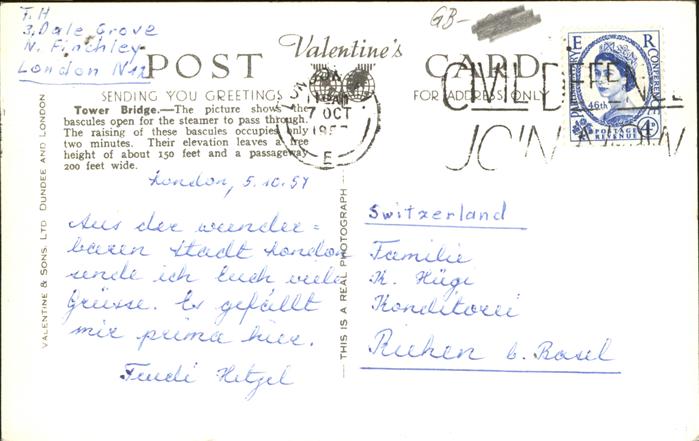 T.H
3, Dale Grove
N. Finchley
London N12
GB-
POST Valentine's CARD
SENDING YOU GREETINGS
FOR ADDRESS ONLY
Tower Bridge.—The picture shows the
bascules open for the steamer to pass through.
The raising of these bascules occupies only
two minutes. Their elevation leaves a free
height of about 150 feet and a passageway
200 feet wide.
VALENTINE & SONS, LTD DUNDEE AND LONDON.
THIS IS A REAL PHOTOGRAPH
LONDON
7 OCT
1957
E
CIVIL DEFENCE
JOIN NOW
E R
PARLIAMENTARY
CONFERENCE
46th
POSTAGE
REVENUE
4D
London, 5.10.57
Aus der wunder=
baren Stadt London
sende ich Euch viele
Grüsse. Es gefällt
mir prima hier.
Trudi Hetzel
Switzerland
Familie
K. Hügi
Konditorei
Riehen b. Basel